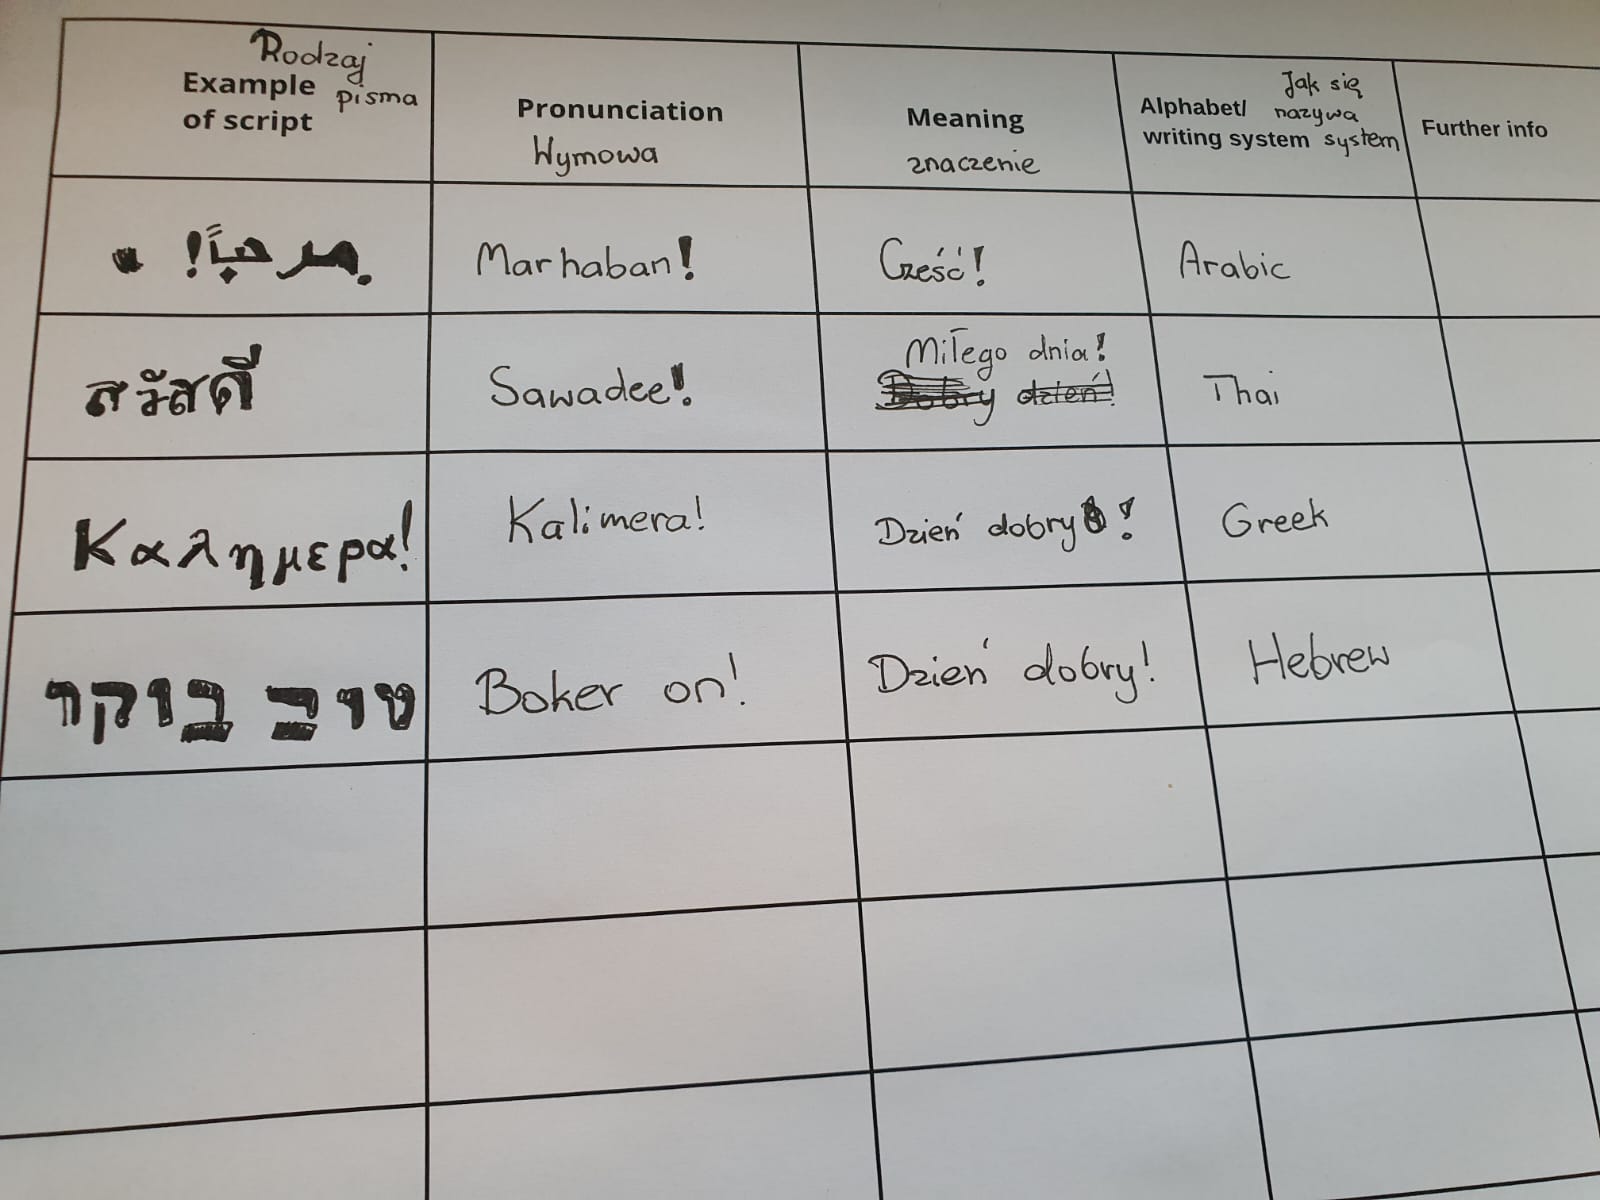 Rodzaj
Example pisma
of script
Pronunciation
Wymowa
Meaning
znaczenie
Jak się
Alphabet/ nazywa
writing system system
Further info
مرحباً!
Marhaban!
Cześć!
Arabic
สวัสดี
Sawadee!
Miłego dnia!
Dobry dzień!
Thai
Καλημερα!
Kalimera!
Dzień dobry!
Greek
טוב בוקר
Boker on!
Dzień dobry!
Hebrew